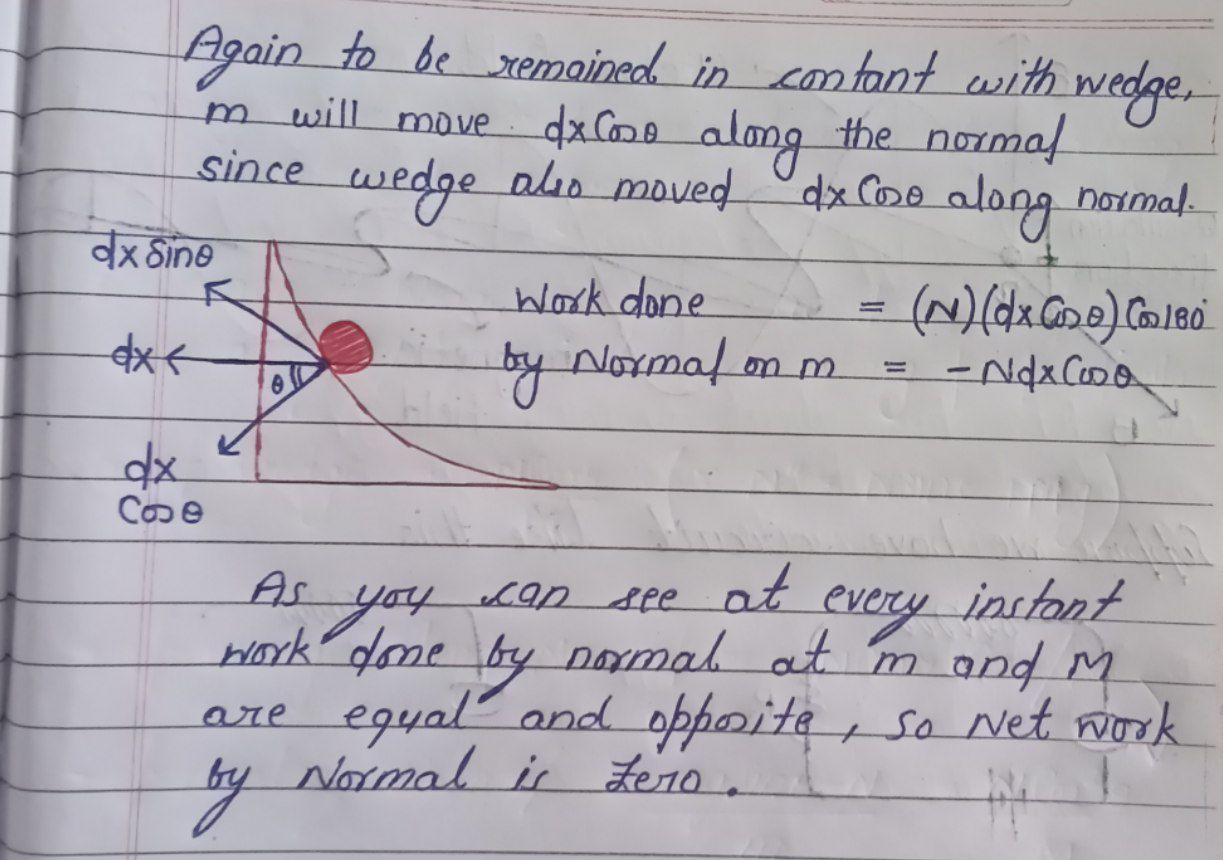 Again to be remained in contant with wedge,
m will move dx Cosθ along the normal
since wedge also moved dx Cosθ along normal.
dx Sinθ
Work done = (N)(dx Cosθ) Cos180°
dx
θ
by Normal on m = -Ndx Cosθ
dx
Cosθ
As you can see at every instant
work done by normal at m and M
are equal and opposite, so Net work
by Normal is Zero.